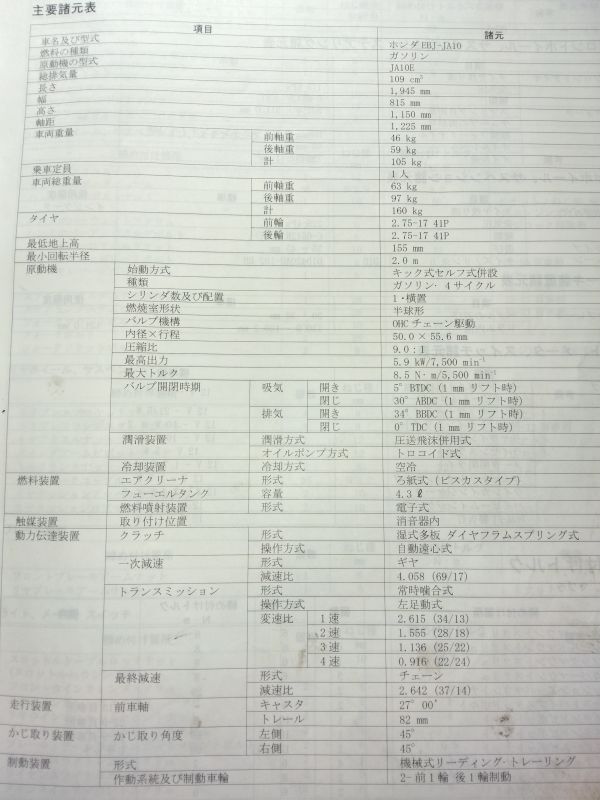 主要諸元表
項目 諸元
車名及び型式 ホンダ EBJ-JA10
燃料の種類 ガソリン
原動機の型式 JA10E
総排気量 109 cm³
長さ 1,945 mm
幅 815 mm
高さ 1,150 mm
軸距 1,225 mm
車両重量 前軸重 46 kg
後軸重 59 kg
計 105 kg
乗車定員 1人
車両総重量 前軸重 63 kg
後軸重 97 kg
計 160 kg
タイヤ 前輪 2.75-17 41P
後輪 2.75-17 41P
最低地上高 155 mm
最小回転半径 2.0 m
原動機 始動方式 キック式セルフ式併設
種類 ガソリン・4サイクル
シリンダ数及び配置 1・横置
燃焼室形状 半球形
バルブ機構 OHC チェーン駆動
内径×行程 50.0 × 55.6 mm
圧縮比 9.0：1
最高出力 5.9 kW/7,500 min⁻¹
最大トルク 8.5 N・m/5,500 min⁻¹
バルブ開閉時期 吸気 開き 5° BTDC (1 mm リフト時)
閉じ 30° ABDC (1 mm リフト時)
排気 開き 34° BBDC (1 mm リフト時)
閉じ 0° TDC (1 mm リフト時)
潤滑装置 潤滑方式 圧送飛沫併用式
オイルポンプ方式 トロコイド式
冷却装置 冷却方式 空冷
燃料装置 エアクリーナ 形式 ろ紙式 (ビスカスタイプ)
フューエルタンク 容量 4.3 ℓ
燃料噴射装置 形式 電子式
触媒装置 取り付け位置 消音器内
動力伝達装置 クラッチ 形式 湿式多板 ダイヤフラムスプリング式
操作方式 自動遠心式
一次減速 形式 ギヤ
減速比 4.058 (69/17)
トランスミッション 形式 常時噛合式
操作方式 左足動式
変速比 1速 2.615 (34/13)
2速 1.555 (28/18)
3速 1.136 (25/22)
4速 0.916 (22/24)
最終減速 形式 チェーン
減速比 2.642 (37/14)
走行装置 前車軸 キャスタ 27° 00′
トレール 82 mm
かじ取り装置 かじ取り角度 左側 45°
右側 45°
制動装置 形式 機械式リーディング・トレーリング
作動系統及び制動車輪 2-前1輪 後1輪制動